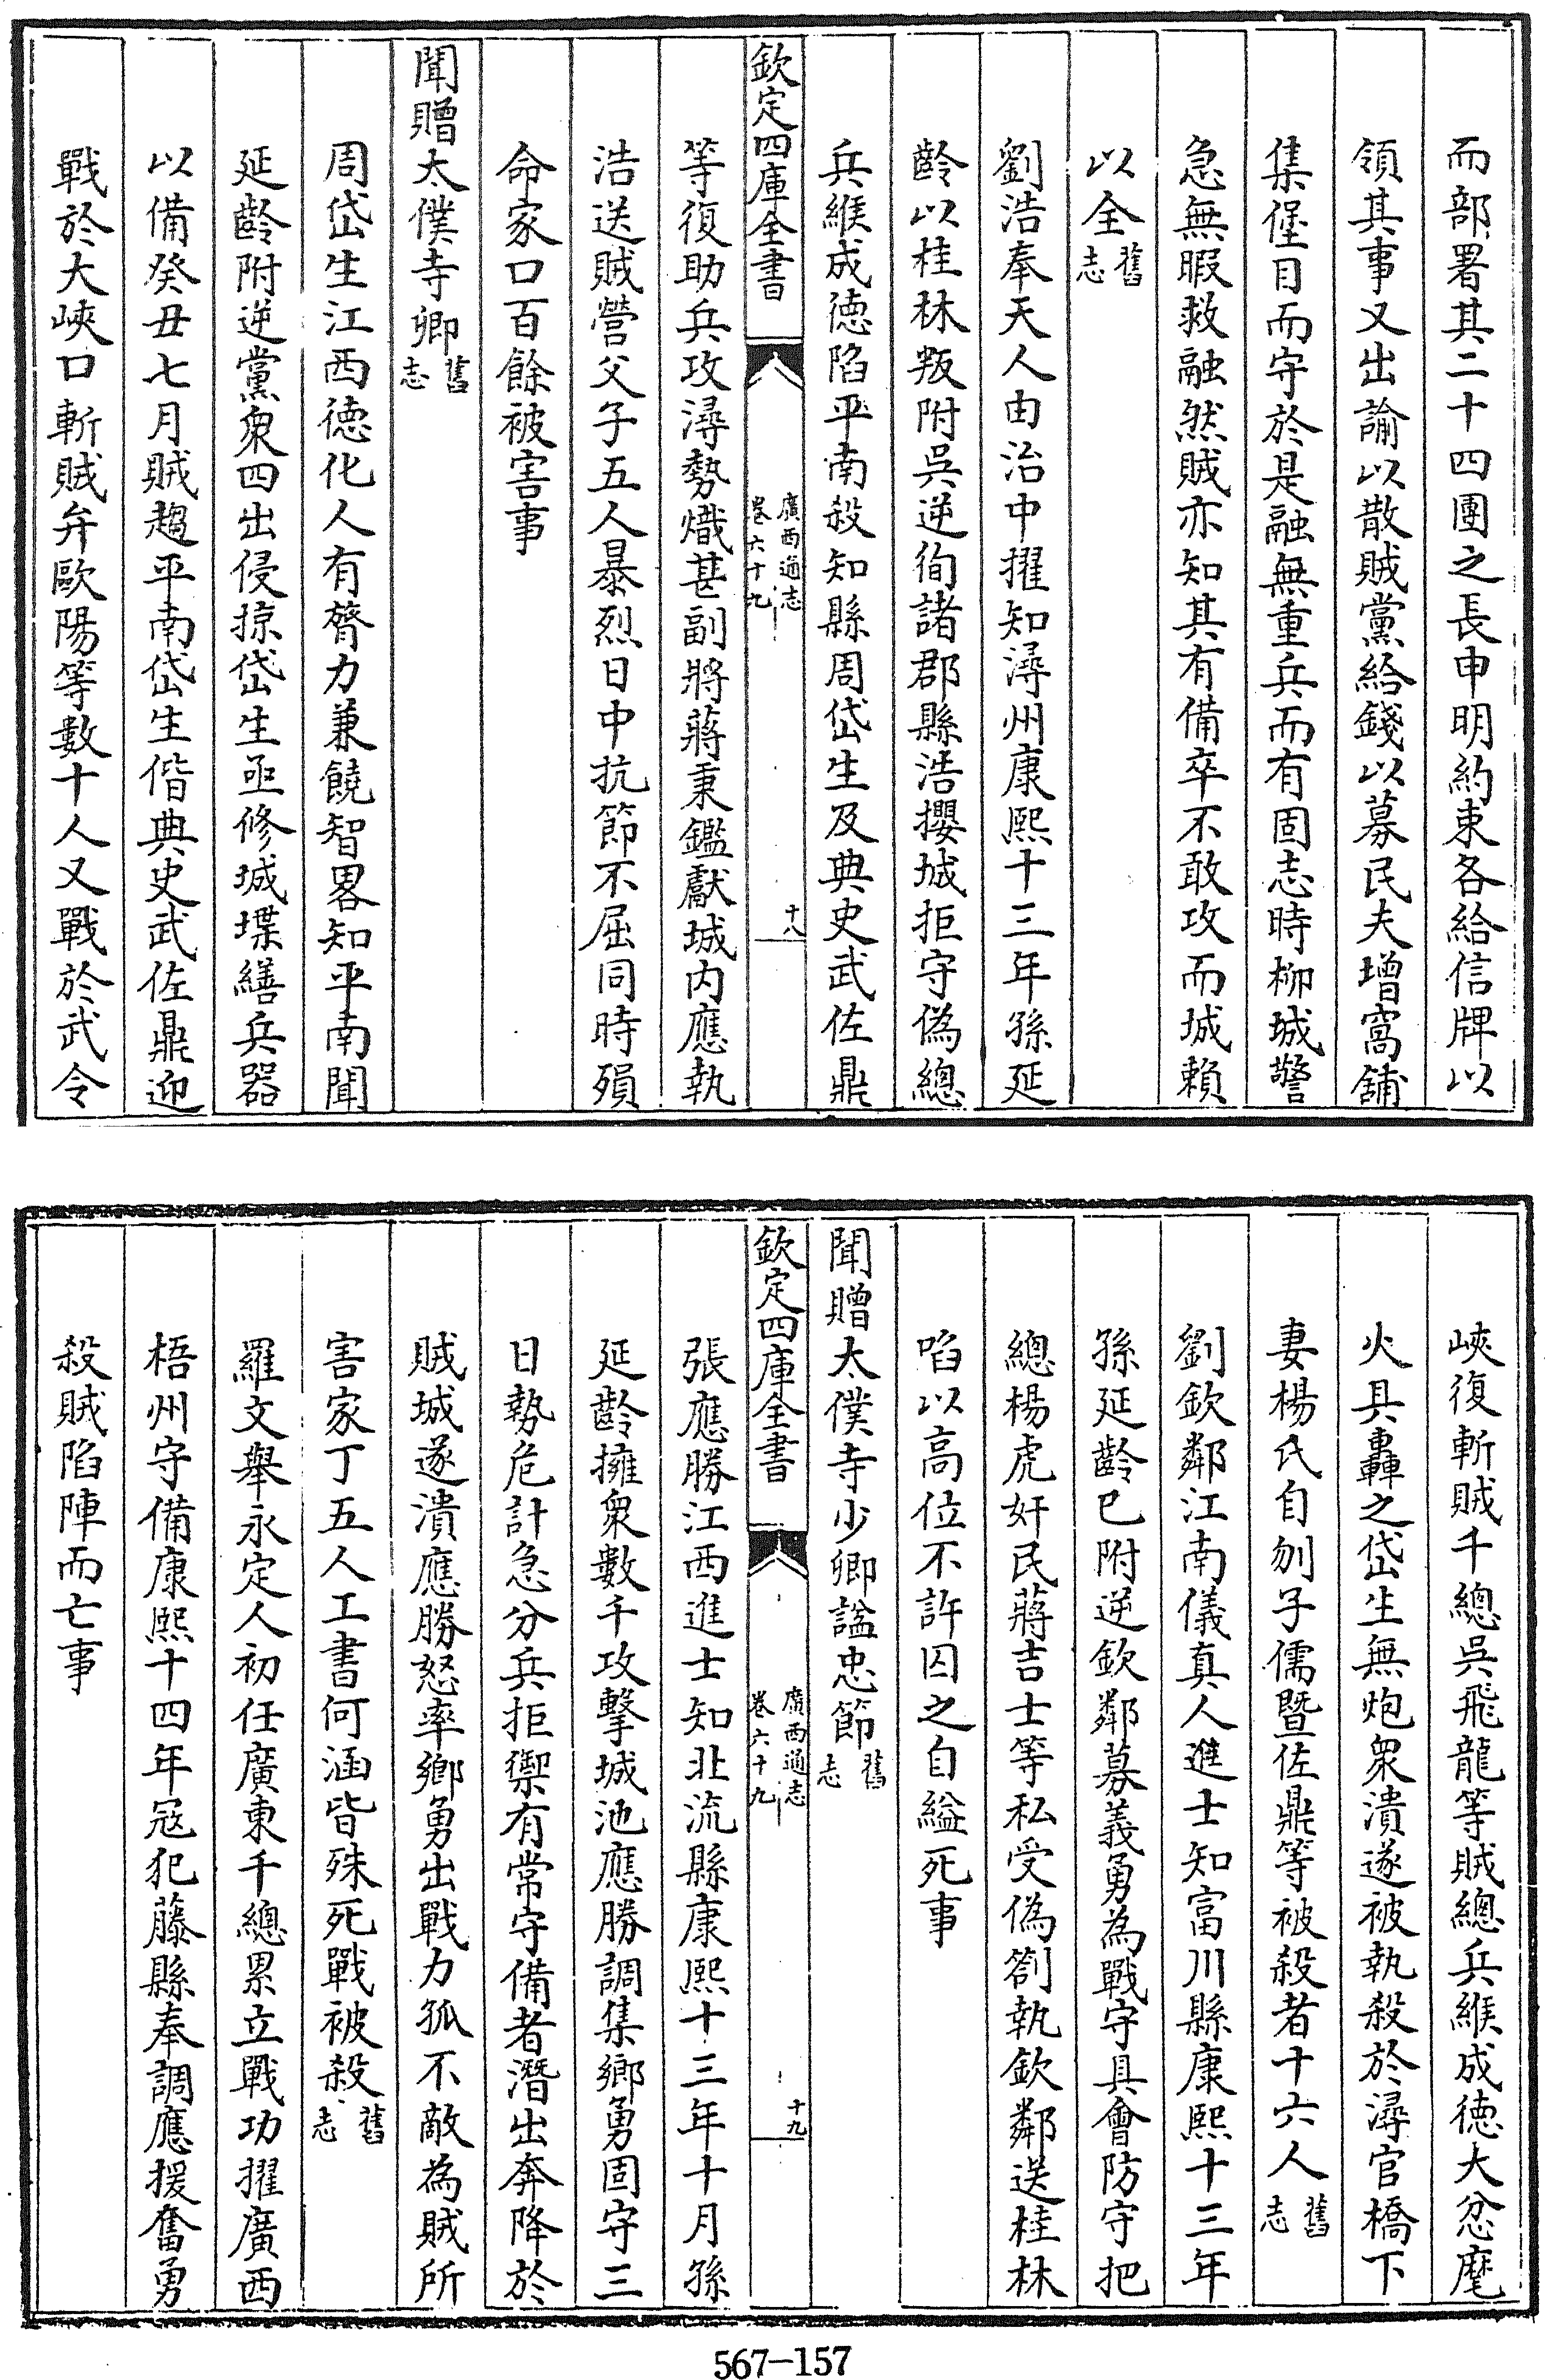 而部署其二十四團之長申明約束各給信牌以
領其事又出諭以散賊黨給錢以募民夫增窩舖
集堡目而守於是融無重兵而有固志時柳城警
急無暇救融然賊亦知其有備卒不敢攻而城賴
以全舊志
劉浩奉天人由治中擢知潯州康熙十三年孫延
齡以桂林叛附吳逆徇諸郡縣浩攖城拒守偽總
兵緱成德陷平南殺知縣周岱生及典史武佐鼎
欽定四庫全書
廣西通志
卷六十九
十八
等復助兵攻潯勢熾甚副將蔣秉鑑獻城內應執
浩送賊營父子五人暴烈日中抗節不屈同時殞
命家口百餘被害事
聞贈太僕寺卿舊志
周岱生江西德化人有膂力兼饒智畧知平南聞
延齡附逆黨衆四出侵掠岱生亟修城堞繕兵器
以備癸丑七月賊趨平南岱生偕典史武佐鼎迎
戰於大峽口斬賊弁歐陽等數十人又戰於武令
峽復斬賊千總吳飛龍等賊總兵緱成德大忿麾
火具轟之岱生無炮衆潰遂被執殺於潯官橋下
妻楊氏自刎子儒暨佐鼎等被殺者十六人舊志
劉欽鄰江南儀真人進士知富川縣康熙十三年
孫延齡已附逆欽鄰募義勇為戰守具會防守把
總楊虎奸民蔣吉士等私受偽劄執欽鄰送桂林
啗以高位不許囚之自縊死事
聞贈太僕寺少卿諡忠節舊志
欽定四庫全書
廣西通志
卷六十九
十九
張應勝江西進士知北流縣康熙十三年十月孫
延齡擁衆數千攻擊城池應勝調集鄉勇固守三
日勢危計急分兵拒禦有常守備者潛出奔降於
賊城遂潰應勝怒率鄉勇出戰力孤不敵為賊所
害家丁五人工書何涵皆殊死戰被殺舊志
羅文舉永定人初任廣東千總累立戰功擢廣西
梧州守備康熙十四年冦犯藤縣奉調應援奮勇
殺賊陷陣而亡事
567-157